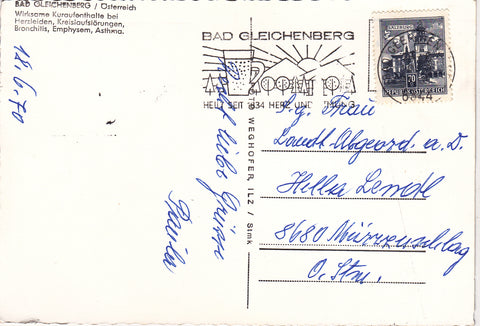 BAD GLEICHENBERG / Österreich
Wirksame Kuraufenthalte bei
Herzleiden, Kreislaufstörungen,
Bronchitis, Emphysem, Asthma.
18.6.70
liebe Grüsse
WEGHOFER ILZ / Stmk
BAD GLEICHENBERG
HEILT SEIT 1834 HERZ UND
70
REPUBLIK ÖSTERREICH
Frau
Landt. Abgeord. a. D.
Hella Lendl
8680 Mürzzuschlag
O. Stm.